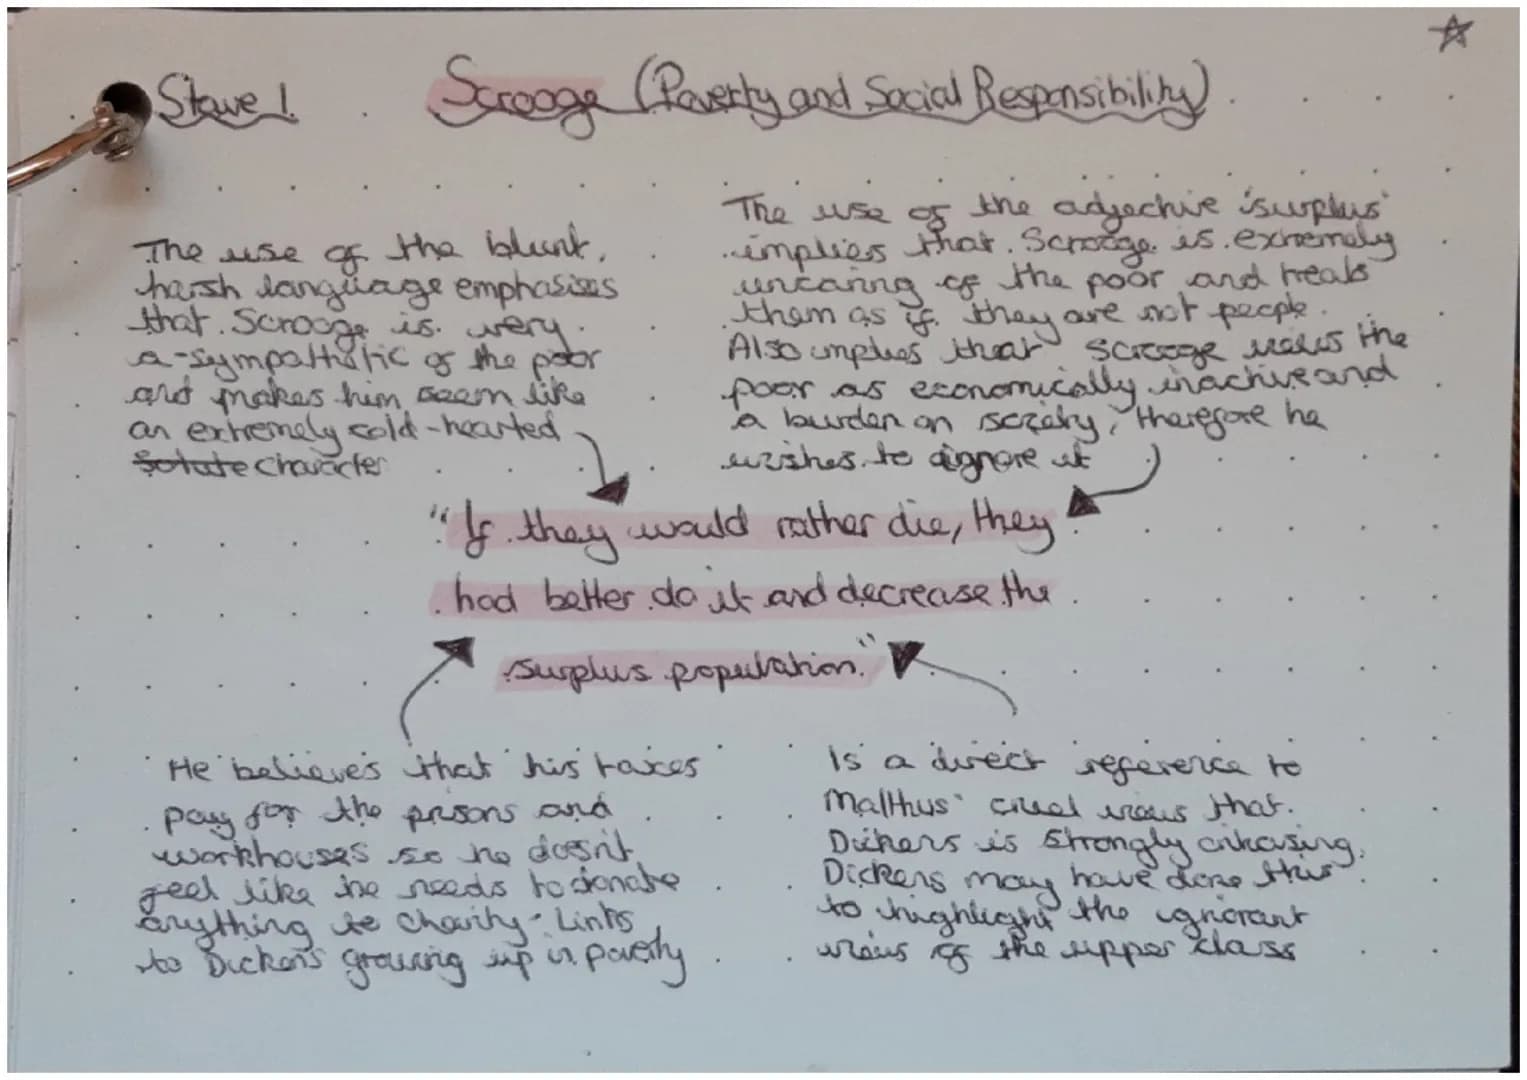 Stave 1.
Scrooge (Poverty and Social Responsibility)
The use of the blunt,
harsh language emphasises
that Scrooge is very
a-sympathetic of the poor
and makes him seem like
an extremely cold-hearted
character
The use of the adjective 'surplus'
implies that Scrooge is extremely
uncaring of the poor and treats
them as if they are not people.
Also implies that Scrooge views the
poor as economically inactive and
a burden on society, therefore he
wishes to ignore it
"If they would rather die, they
had better do it and decrease the
surplus population."
He believes that his taxes
pay for the prisons and
workhouses so he doesn't
feel like he needs to donate
anything to charity - Links
to Dickens growing up in poverty
Is a direct reference to
Malthus' cruel views that
Dickens is strongly criticising.
Dickens may have done this
to highlight the ignorant
views of the upper class